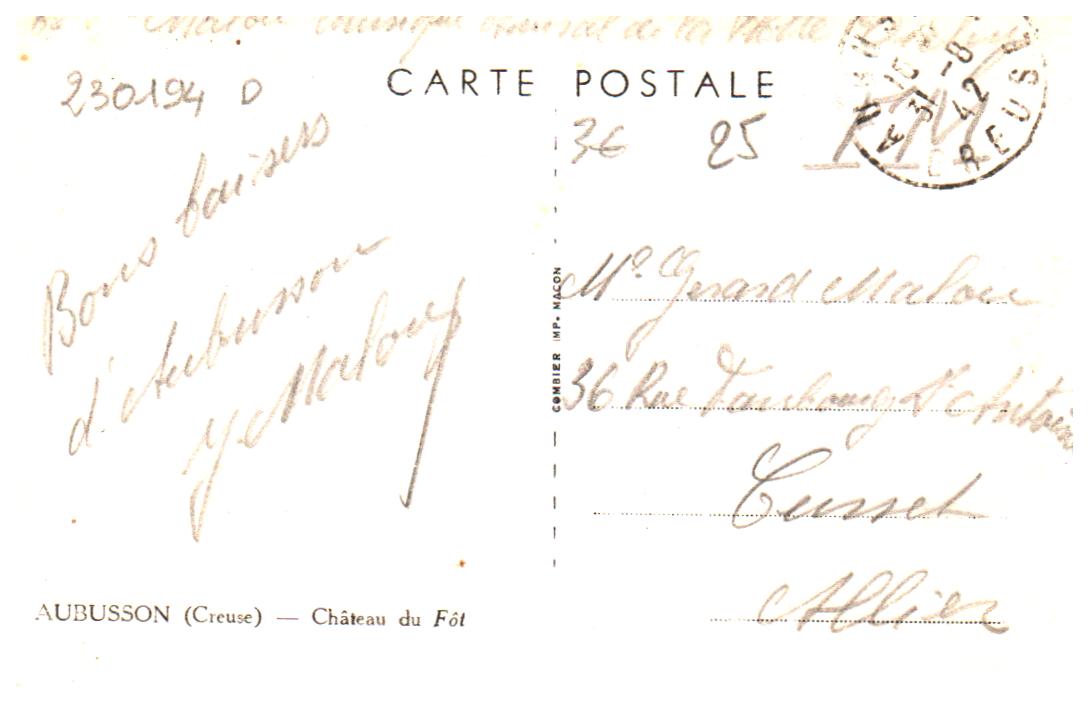 Malou musique
CARTE POSTALE
230194 D
3€ 25 F.M
15 31 -8 42
CREUSE
Bons baisers
d'Aubusson
Y. Malou
Mr. Gerard Malou
36 Rue Faubourg St Antoine
Cusset
Allier
COMBIER IMP. MACON
AUBUSSON (Creuse) — Château du Fôt